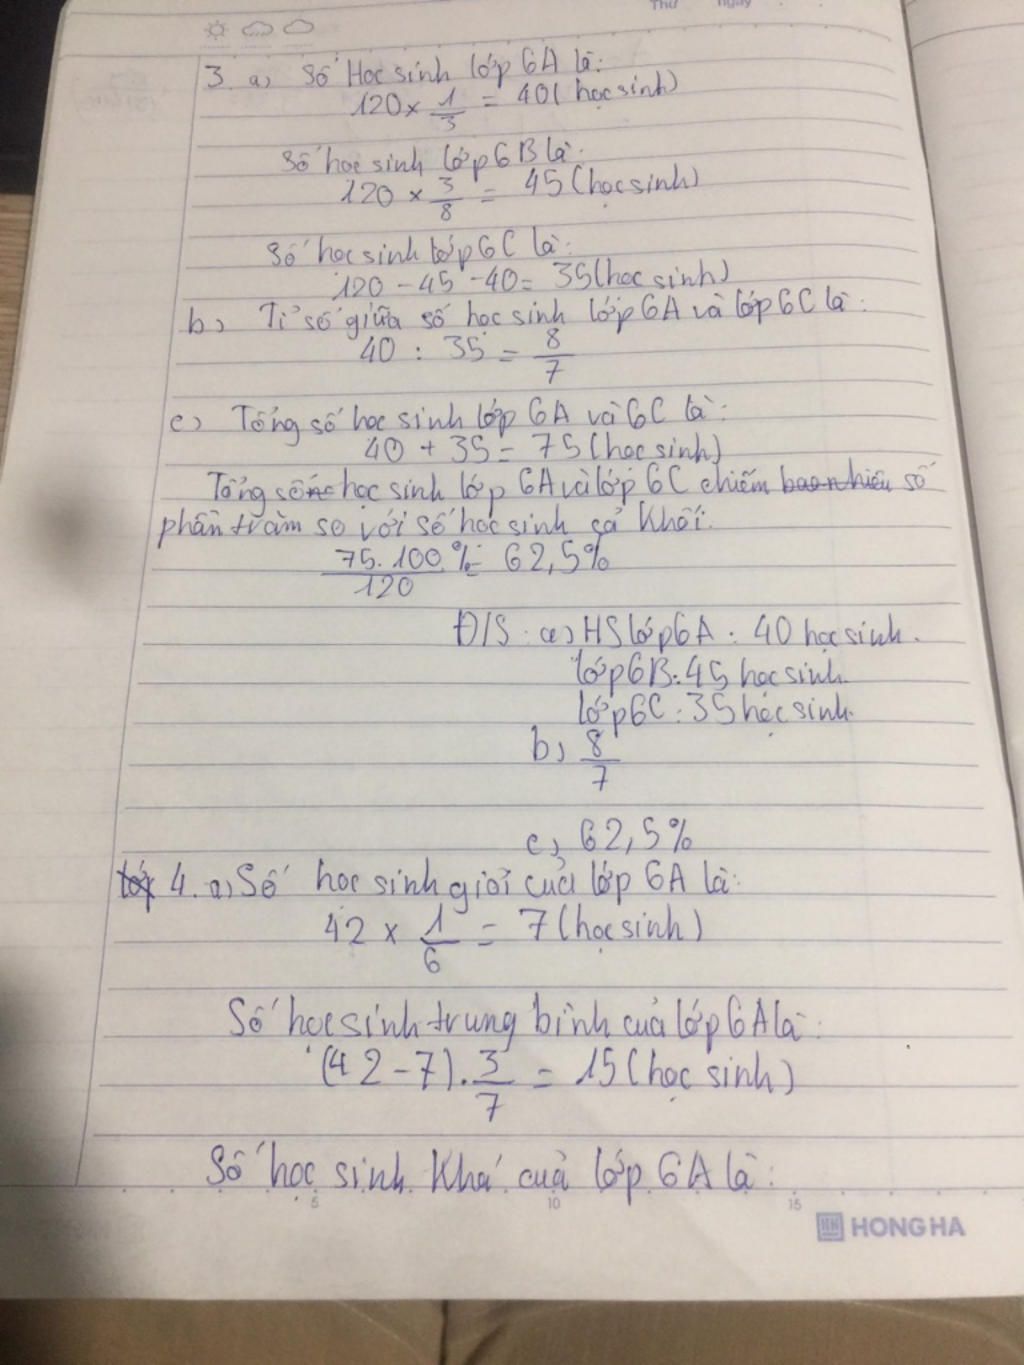 Thứ ngày
3. a, Số Học sinh lớp 6A là:
120 × 1/3 = 40 ( học sinh)
Số học sinh lớp 6B là:
120 × 3/8 = 45 (học sinh)
Số học sinh lớp 6C là:
120 - 45 - 40 = 35 (học sinh)
b, Tỉ số giữa số học sinh lớp 6A và lớp 6C là:
40 : 35 = 8/7
c, Tổng số học sinh lớp 6A và 6C là:
40 + 35 = 75 (học sinh)
Tổng số học sinh lớp 6A và lớp 6C chiếm bao nhiêu số
phần trăm so với số học sinh cả khối:
75.100/120 % = 62,5%
Đ/S: a, HS lớp 6A: 40 học sinh.
lớp 6B: 45 học sinh.
lớp 6C: 35 học sinh.
b, 8/7
c, 62,5%
lớp 4. a, Số học sinh giỏi của lớp 6A là:
42 × 1/6 = 7 (học sinh)
Số học sinh trung bình của lớp 6A là:
(42 - 7) . 3/7 = 15 (học sinh)
Số học sinh khá của lớp 6A là:
5 10 15
HONG HA